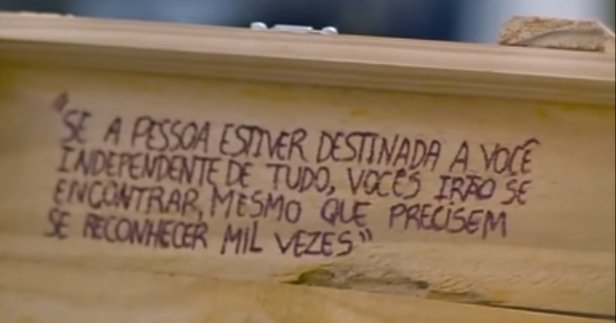 "SE A PESSOA ESTIVER DESTINADA A VOCÊ
INDEPENDENTE DE TUDO, VOCÊS IRÃO SE
ENCONTRAR, MESMO QUE PRECISEM
SE RECONHECER MIL VEZES"